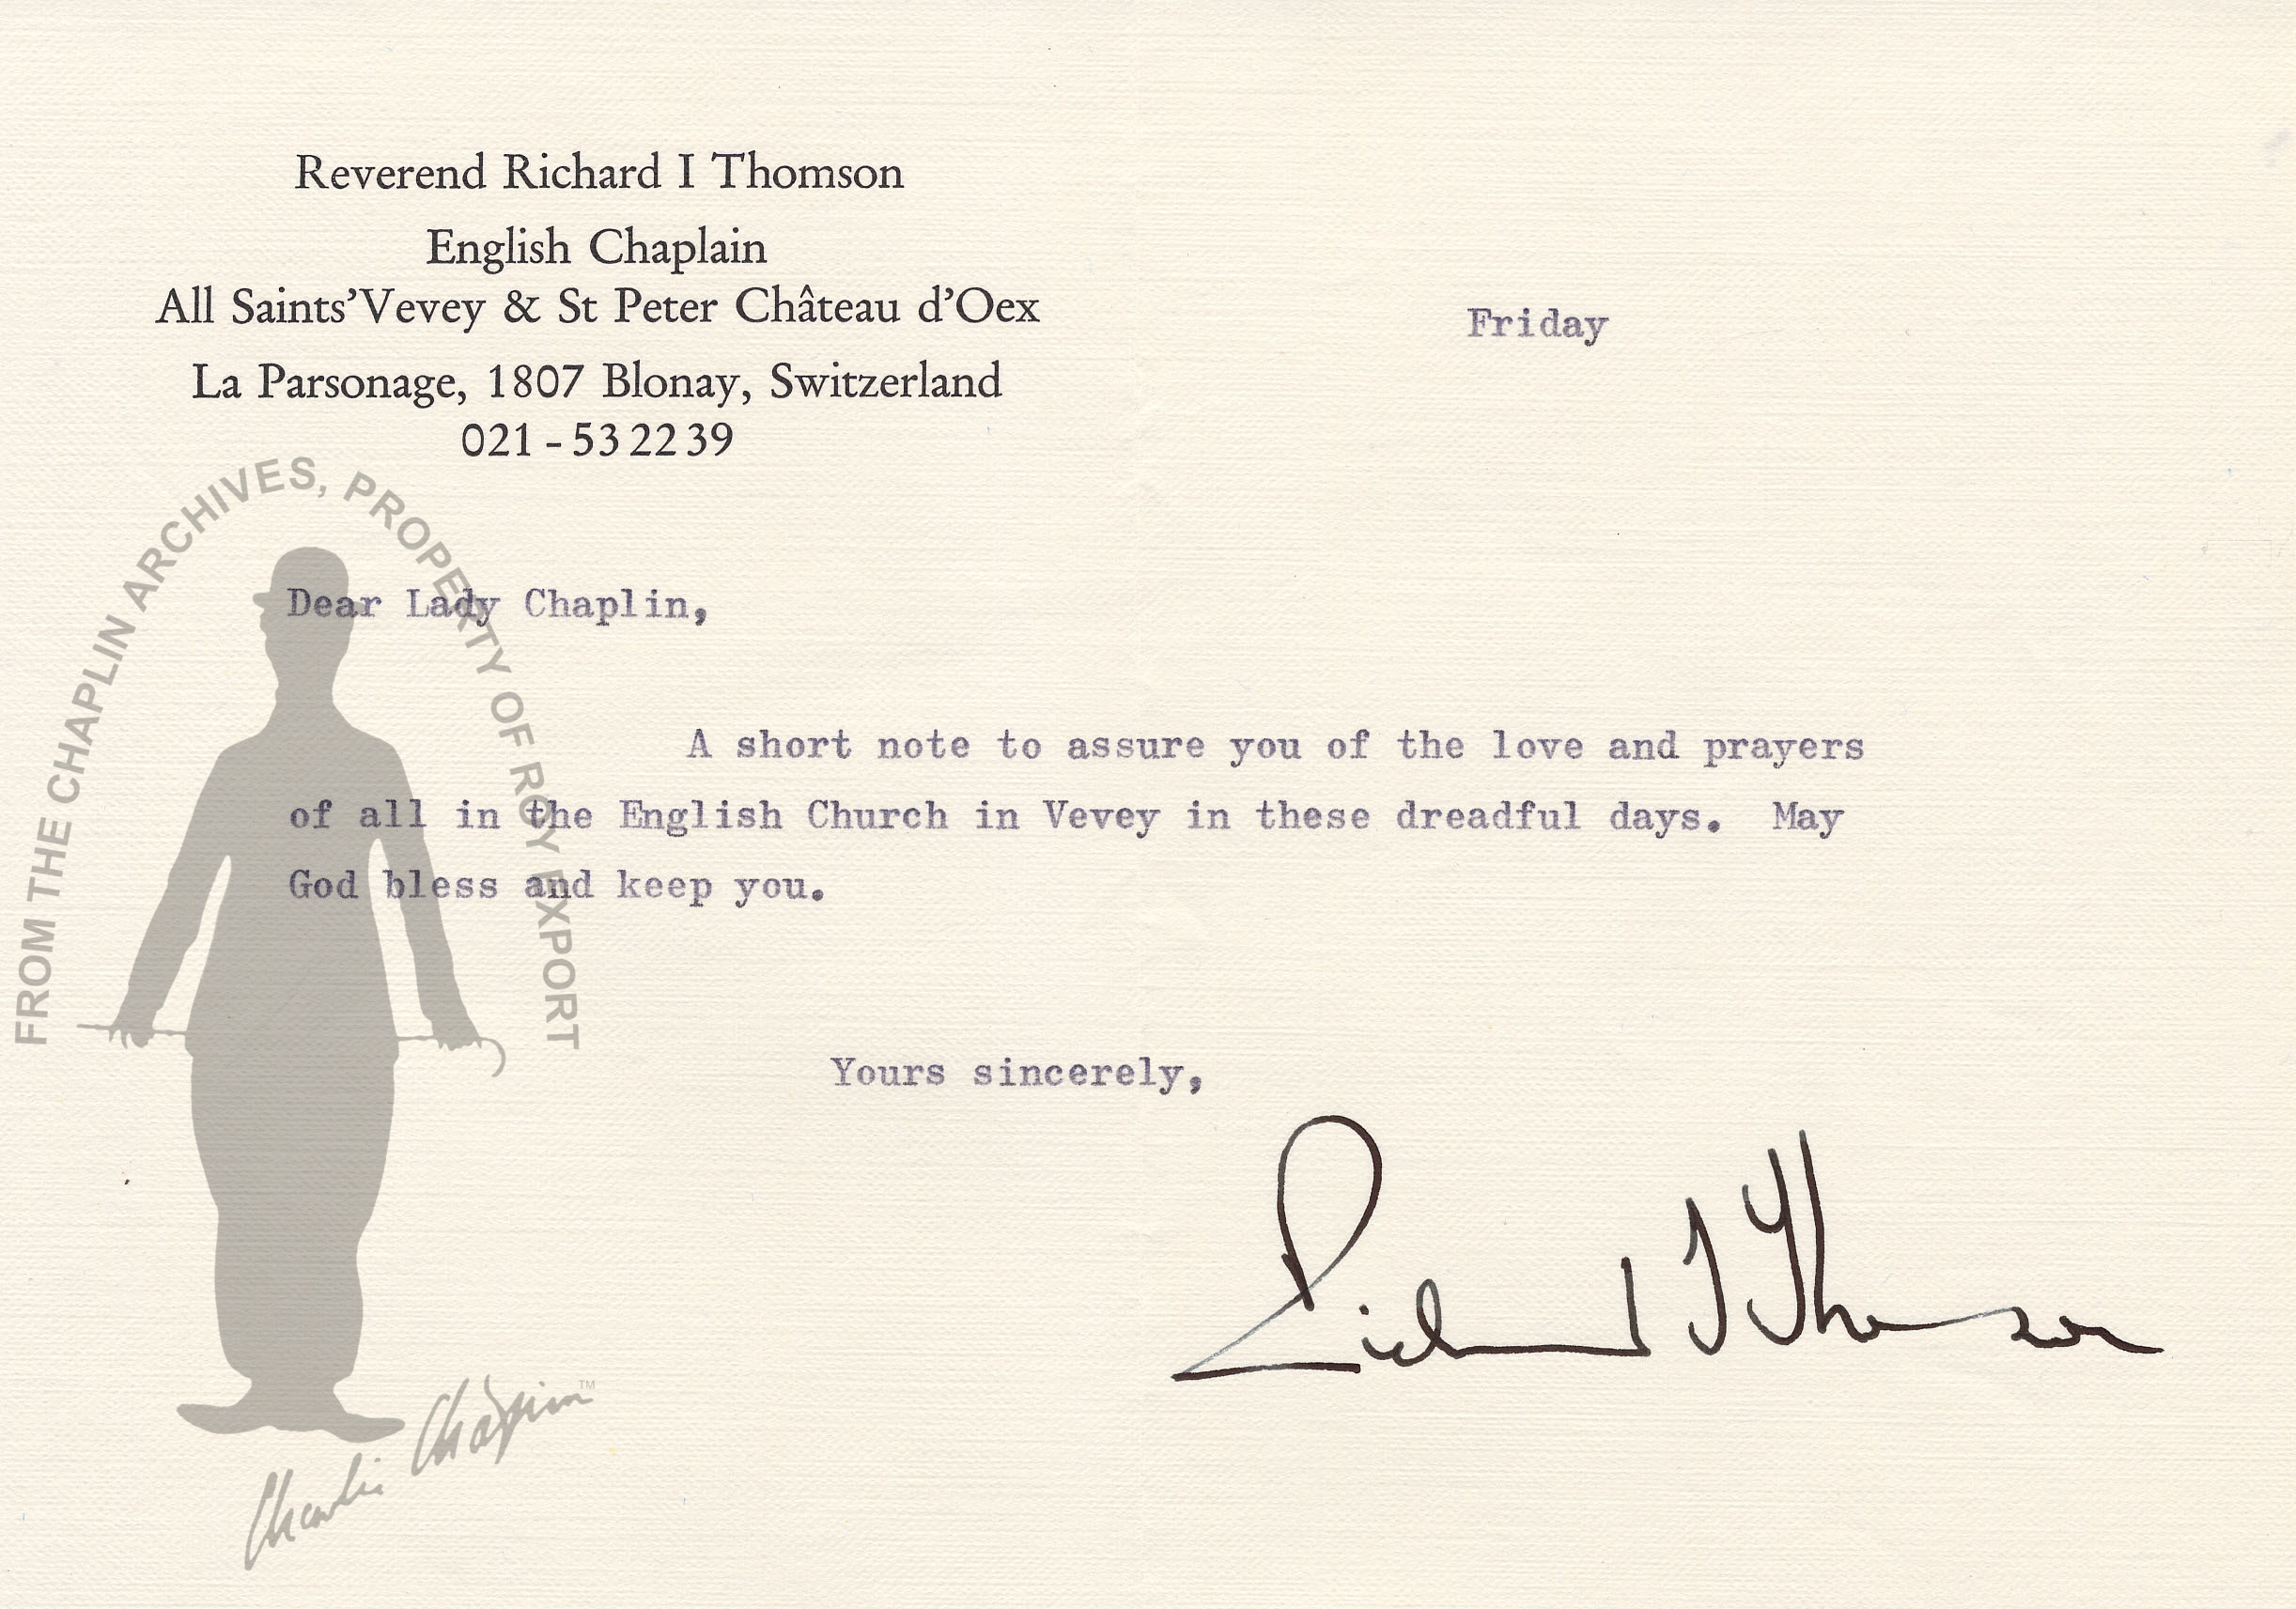 Reverend Richard I Thomson
English Chaplain
All Saints'Vevey & St Peter Château d'Oex
La Parsonage, 1807 Blonay, Switzerland
021 - 53 22 39
Friday
FROM THE CHAPLIN ARCHIVES, PROPERTY OF ROY EXPORT
Dear Lady Chaplin,
A short note to assure you of the love and prayers
of all in the English Church in Vevey in these dreadful days. May
God bless and keep you.
Yours sincerely,
Richard I Thomson
Charlie Chaplin™